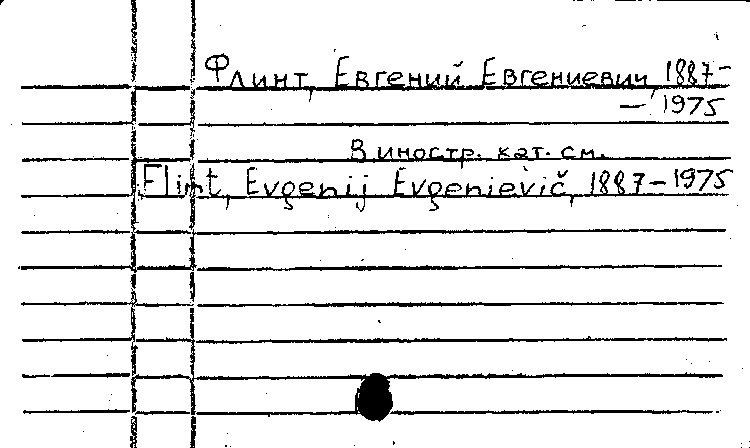 Флинт, Евгений Евгениевич, 1887-
— 1975
В иностр. кат. см.
Flint, Evgenij Evgenievič, 1887-1975